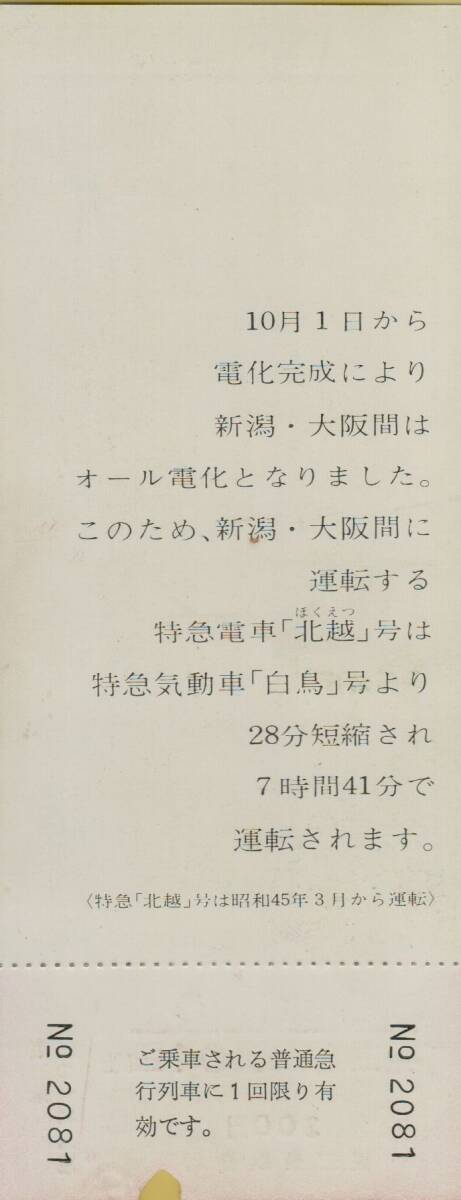 10月1日から
電化完成により
新潟・大阪間は
オール電化となりました。
このため、新潟・大阪間に
運転する
ほくえつ
特急電車「北越」号は
特急気動車「白鳥」号より
28分短縮され
7時間41分で
運転されます。
〈特急「北越」号は昭和45年3月から運転〉
№ 2081
ご乗車される普通急
行列車に1回限り有
効です。
№ 2081